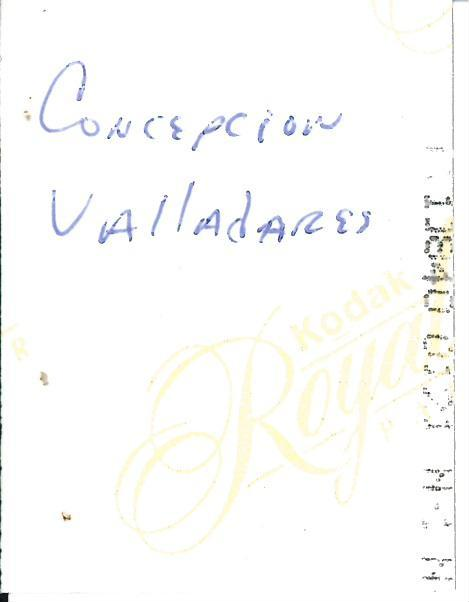 Concepcion
Valladares
Kodak
Royal